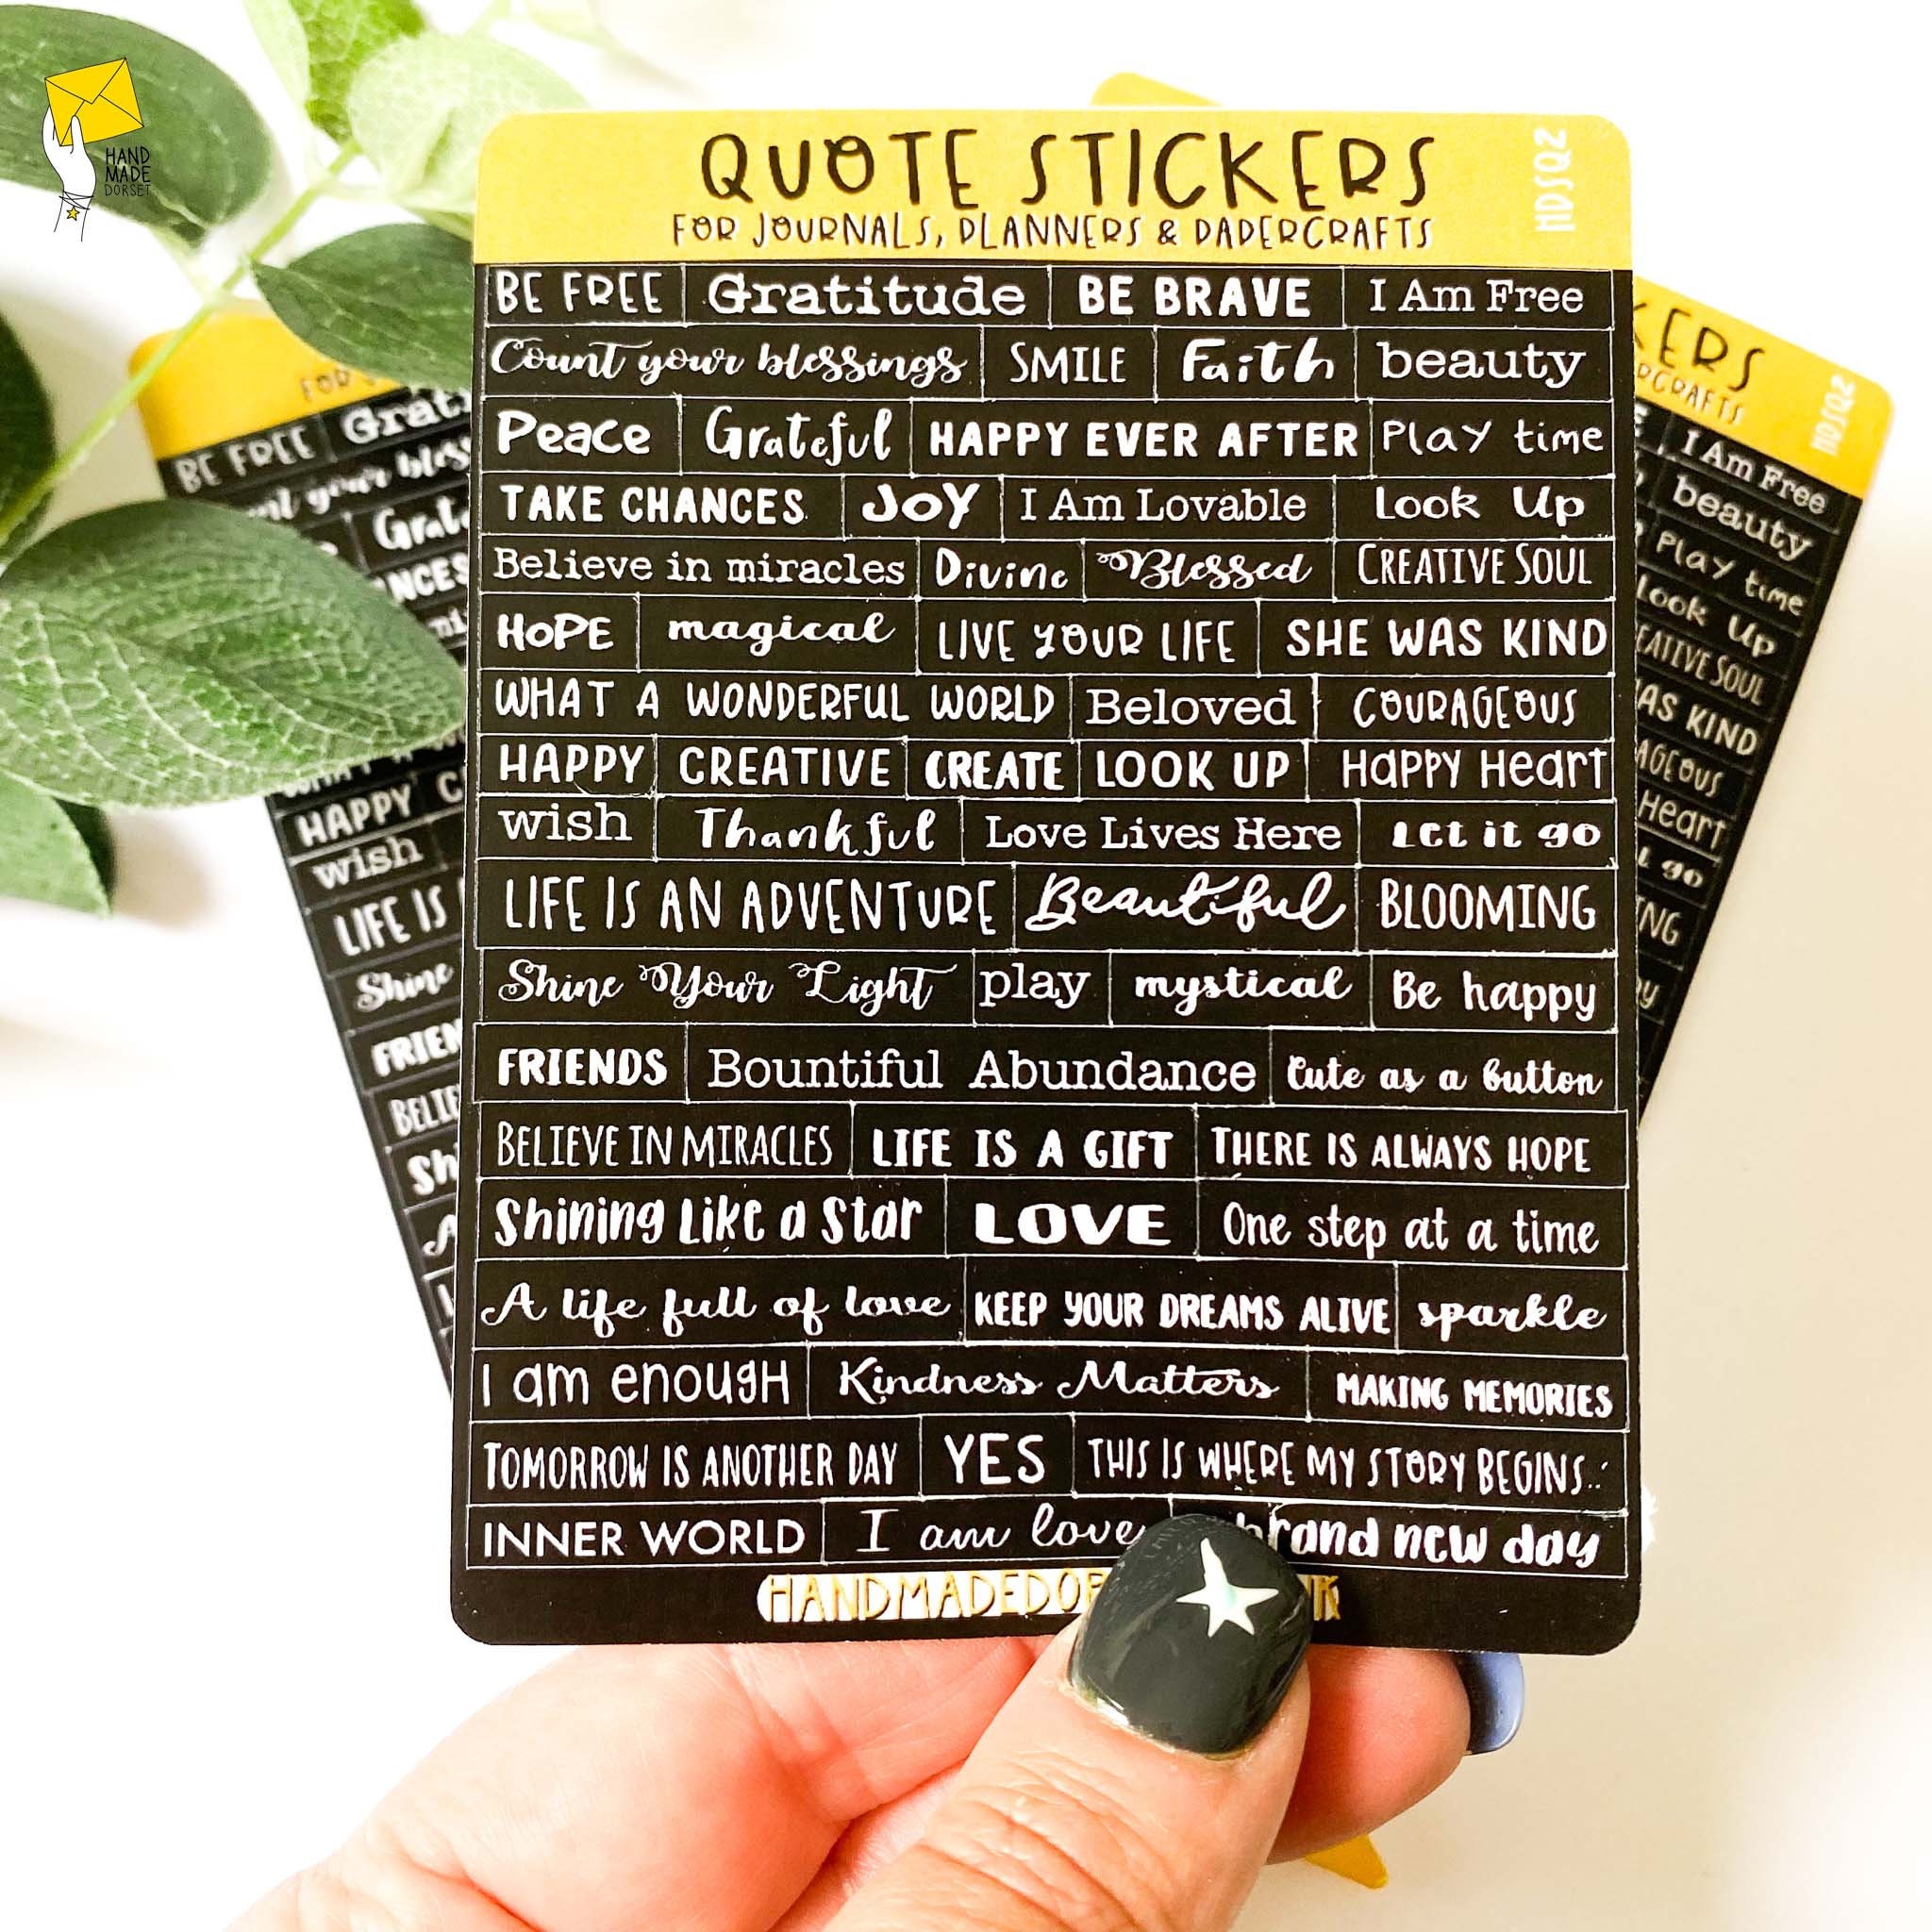 HAND
MADE
DORSET
QUOTE STICKERS
FOR JOURNALS, PLANNERS & PAPERCRAFTS
HDSQ2
BE FREE Gratitude BE BRAVE I Am Free
Count your blessings SMILE Faith beauty
Peace Grateful HAPPY EVER AFTER Play time
TAKE CHANCES JOY I Am Lovable Look Up
Believe in miracles Divine Blessed CREATIVE SOUL
HOPE magical LIVE YOUR LIFE SHE WAS KIND
WHAT A WONDERFUL WORLD Beloved COURAGEOUS
HAPPY CREATIVE CREATE LOOK UP Happy Heart
wish Thankful Love Lives Here Let it go
LIFE IS AN ADVENTURE Beautiful BLOOMING
Shine Your Light play mystical Be happy
FRIENDS Bountiful Abundance Cute as a button
BELIEVE IN MIRACLES LIFE IS A GIFT THERE IS ALWAYS HOPE
Shining Like a Star LOVE One step at a time
A life full of love KEEP YOUR DREAMS ALIVE sparkle
I am enough Kindness Matters MAKING MEMORIES
TOMORROW IS ANOTHER DAY YES THIS IS WHERE MY STORY BEGINS...
INNER WORLD I am love brand new day
BE FREE
HAPPY
wish
LIFE IS
Shine
I Am Free
beauty
Play time
Look Up
SOUL
KIND
Heart
go
HDSQ2